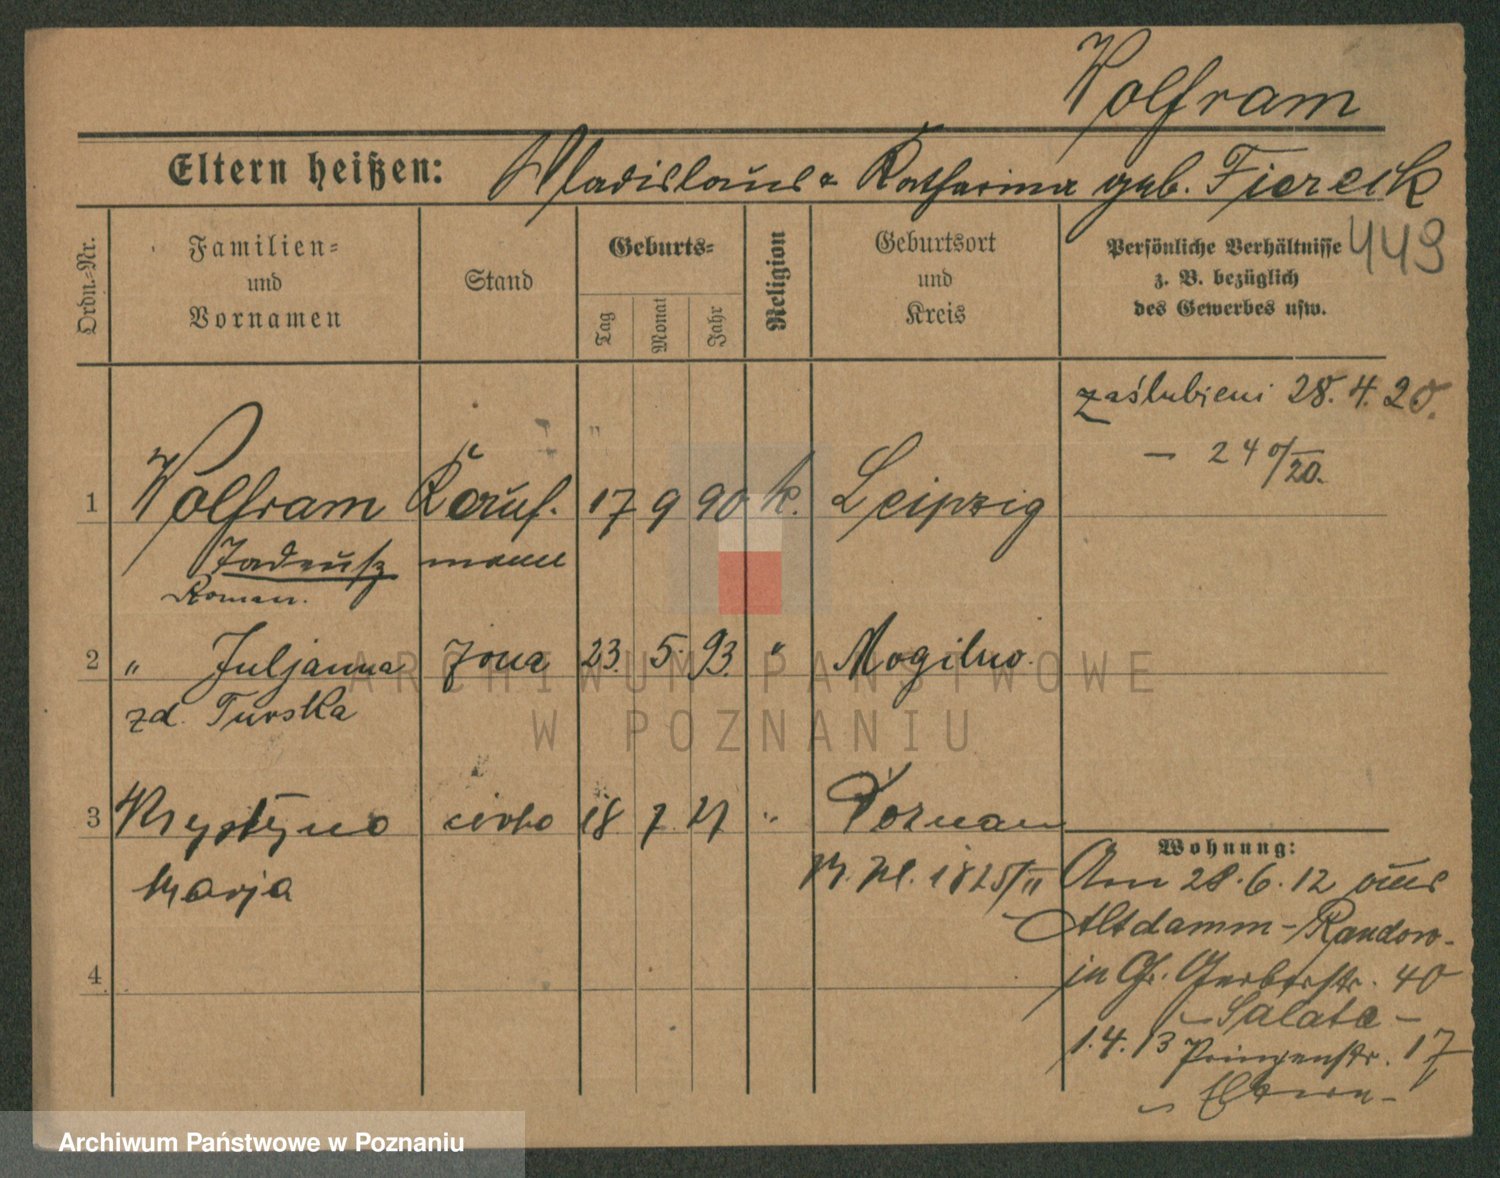 Wolfram
Eltern heißen: Wladislaus & Katharina geb. Fiereck
449
Ordn.-Nr.
Familien-
und
Vornamen
Stand
Geburts-
Tag
Monat
Jahr
Religion
Geburtsort
und
Kreis
Persönliche Verhältnisse
z. B. bezüglich
des Gewerbes usw.
zaślubieni 28. 4. 20.
1 Wolfram Kauf- 17 9 90 k. Leipzig
Tadeusz mann
Roman.
2 " Juljanna żona 23. 5. 93. " Mogilno.
zd. Turska
3 Krystyna córka 18 7 21 " Poznań
Marja
Wohnung:
Am 28.6.12 aus
Altdamm-Randow-
in Gr. Gerberstr. 40
- Salata -
1.4.13 Prinzenstr. 17
- Eltern -
4
ARCHIWUM PAŃSTWOWE
W POZNANIU
Archiwum Państwowe w Poznaniu